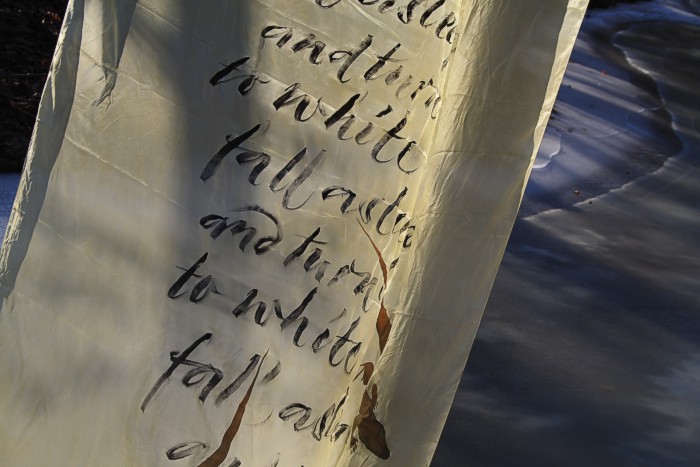 and turn
to white
fall aslee
and turn
to white
fall asl